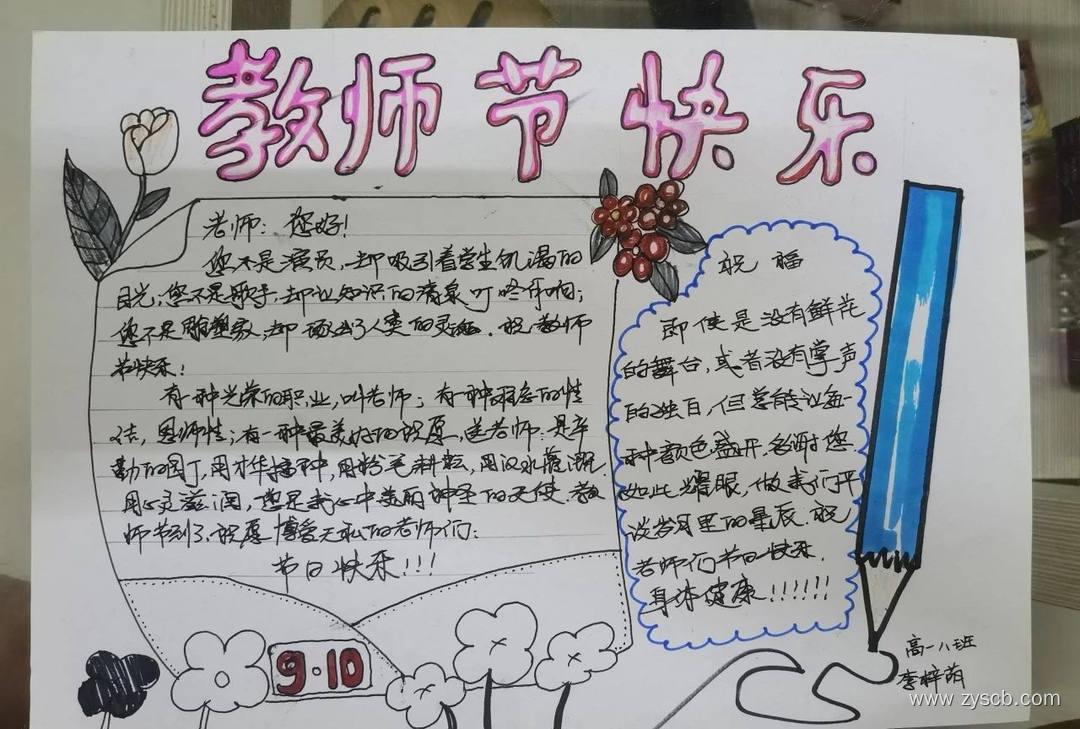 教师节快乐
老师：您好！
您不是演员，却吸引着学生饥渴的
目光；您不是歌手，却让知识的清泉叮咚作响；
您不是雕塑家，却
人类的灵魂．祝教师
节快乐！
有一种光荣的职业，叫老师；有一种
的性
，男师性；有一种最美好的祝愿，送老师：是辛
勤的园丁，用才华播种，用粉笔耕耘，用汉水灌溉，
用心灵滋润，您是我心中美丽神圣的天使．教
师节到了．祝愿博爱无私的老师们：
节日快乐！！！
祝福
即使是没有鲜花
的舞台，或者没有掌声
的独白，但总能让每一
种颜色盛开．多谢您．
如此耀眼，做我们平
淡岁月里的星辰．祝
老师们节日快乐．
身体健康！！！！！！
9·10
高一八班
李梓萌
www.zyscb.com